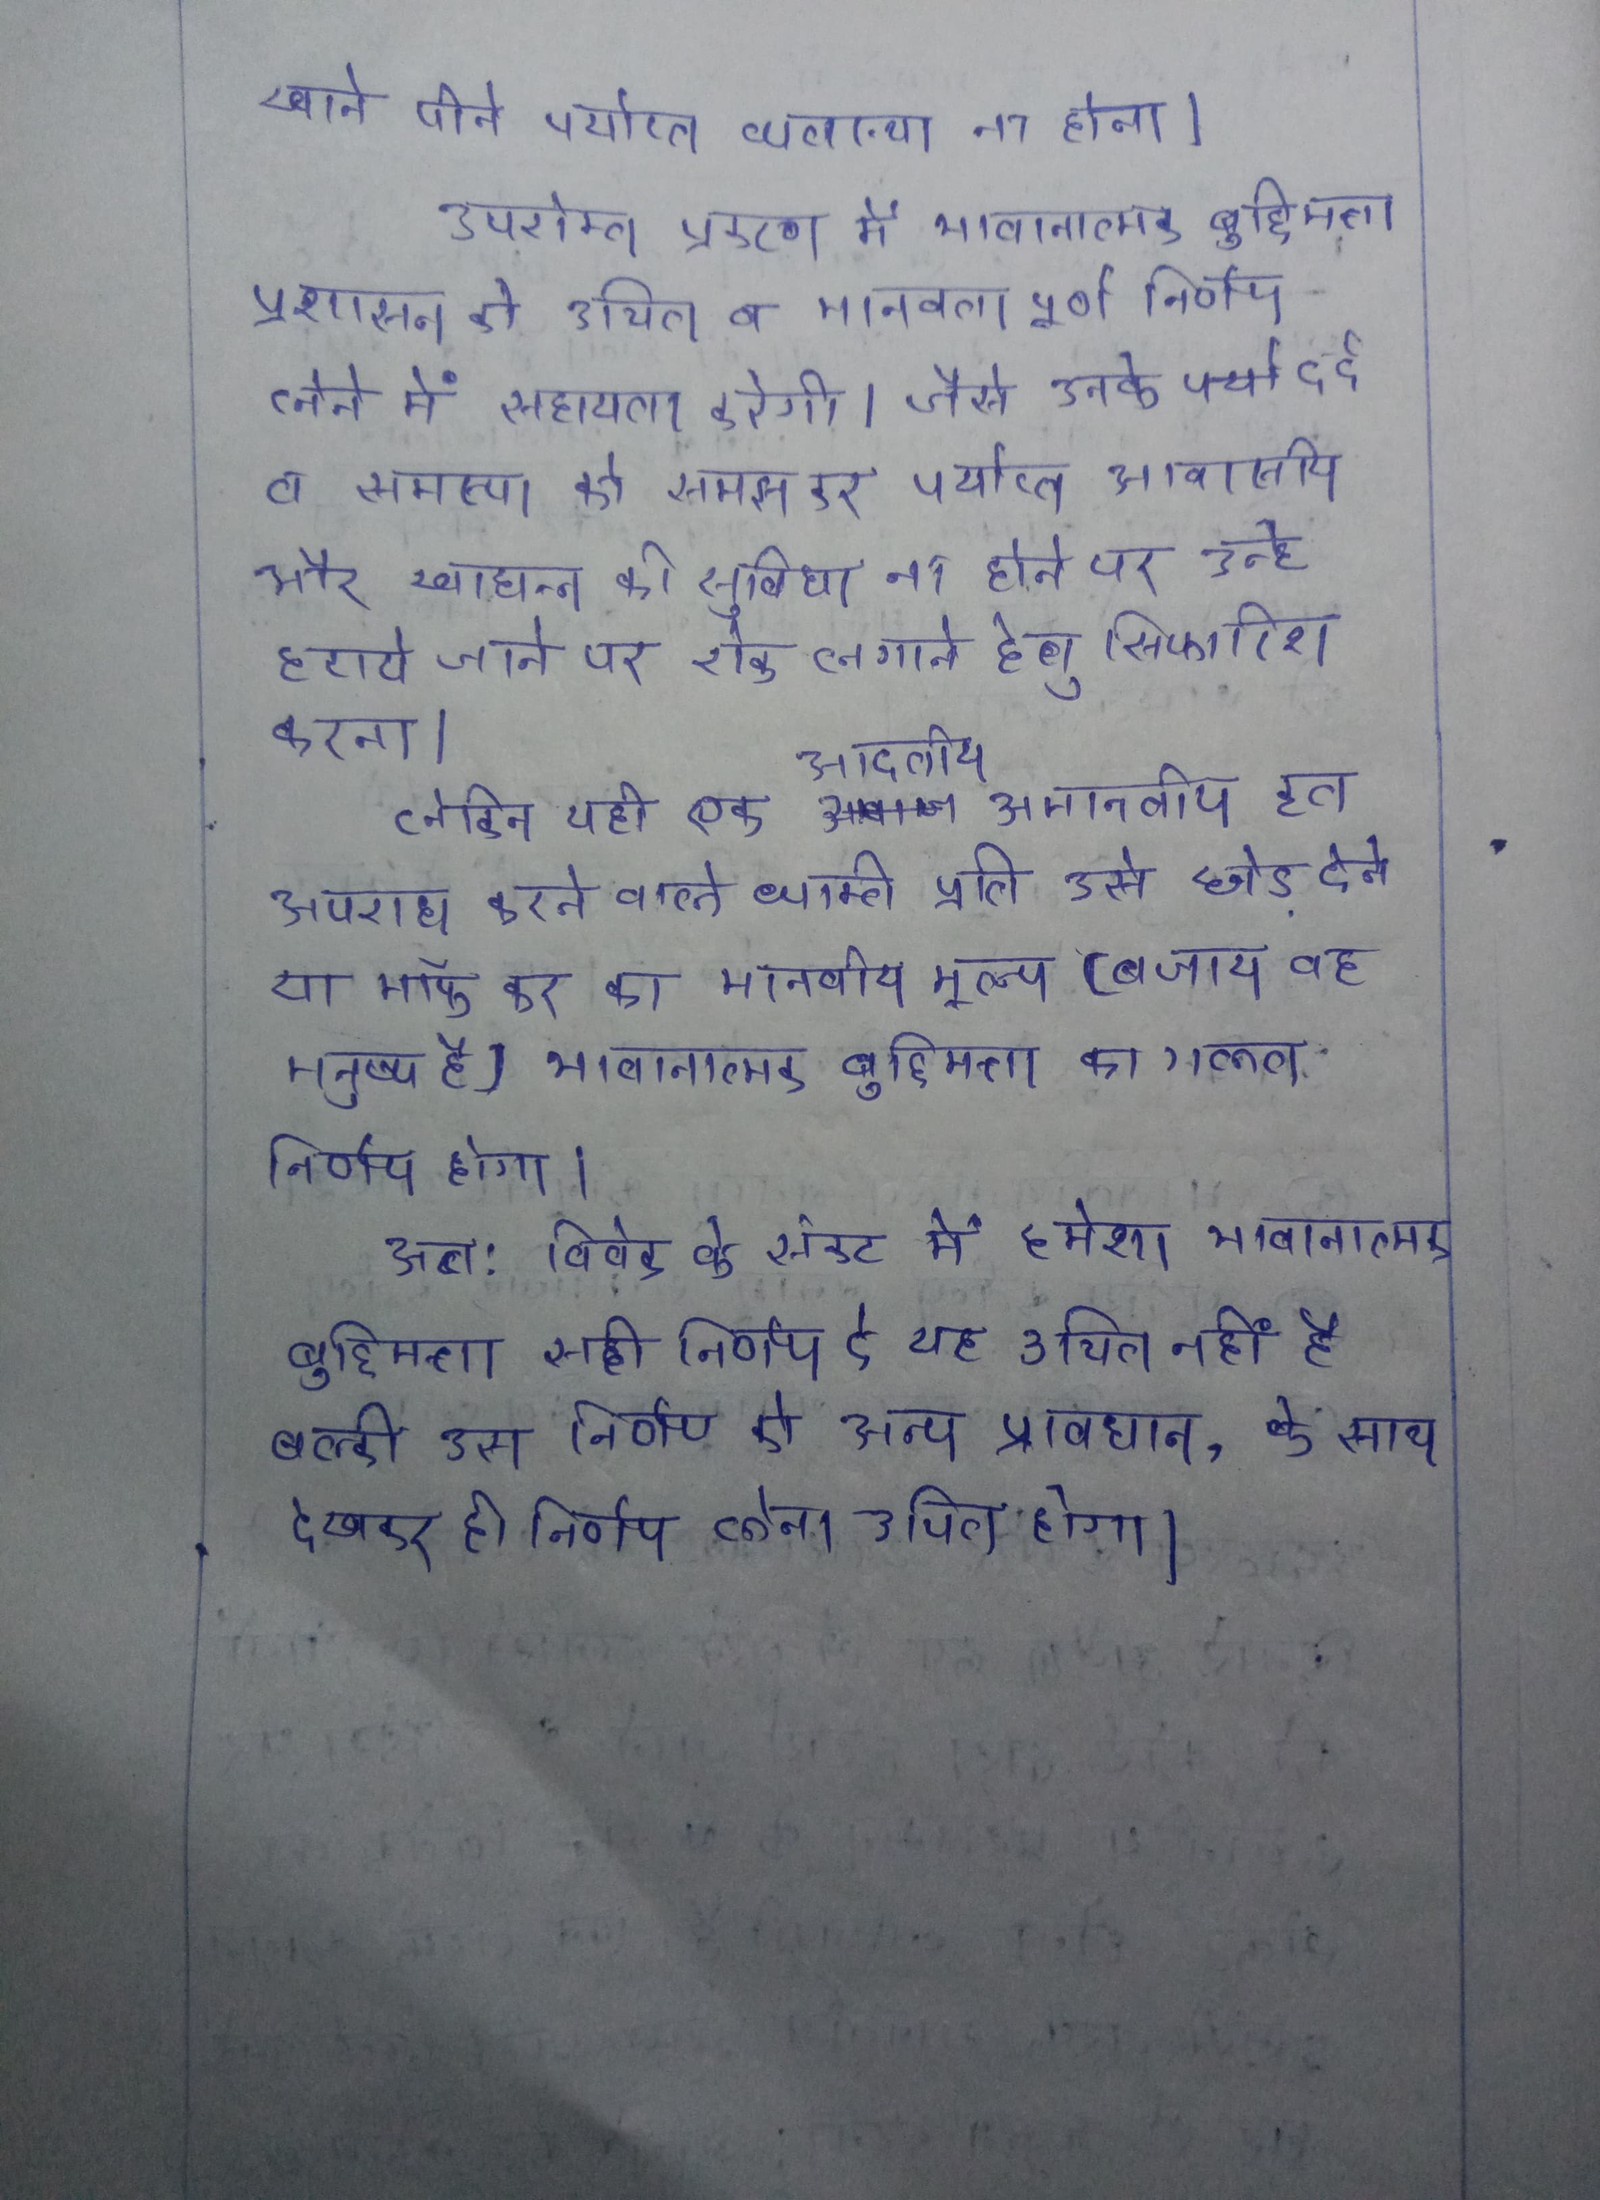 खाने पीने पर्याप्त व्यवस्था ना होना।
उपरोक्त प्रकरण में भावानात्मक बुद्दिमत्ता
प्रशासन को उचित व मानवता पूर्ण निर्णय
लेने में सहायता करेगी। जैसे उनके दर्द
व समस्या को समझकर पर्याप्त आवासीय
और खाद्यान्न की सुविधा ना होने पर उन्हे
हटाये जाने पर रोक लगाने हेतु सिफारिश
करना।
आदतीय
लेकिन यही एक अमानवीय कृत
अपराध करने वाले व्यक्ती प्रति उसे छोड़ देने
या मॉफ कर का मानवीय मूल्य (बजाय वह
मनुष्य है) भावानात्मक बुद्दिमत्ता का गलत
निर्णय होगा।
अतः विवेक के संकट में हमेशा भावानात्मक
बुद्दिमत्ता सही निर्णय दे यह उचित नहीं है
बल्की उस निर्णय को अन्य प्रावधान, के साथ
देखकर ही निर्णय लेना उचित होगा।